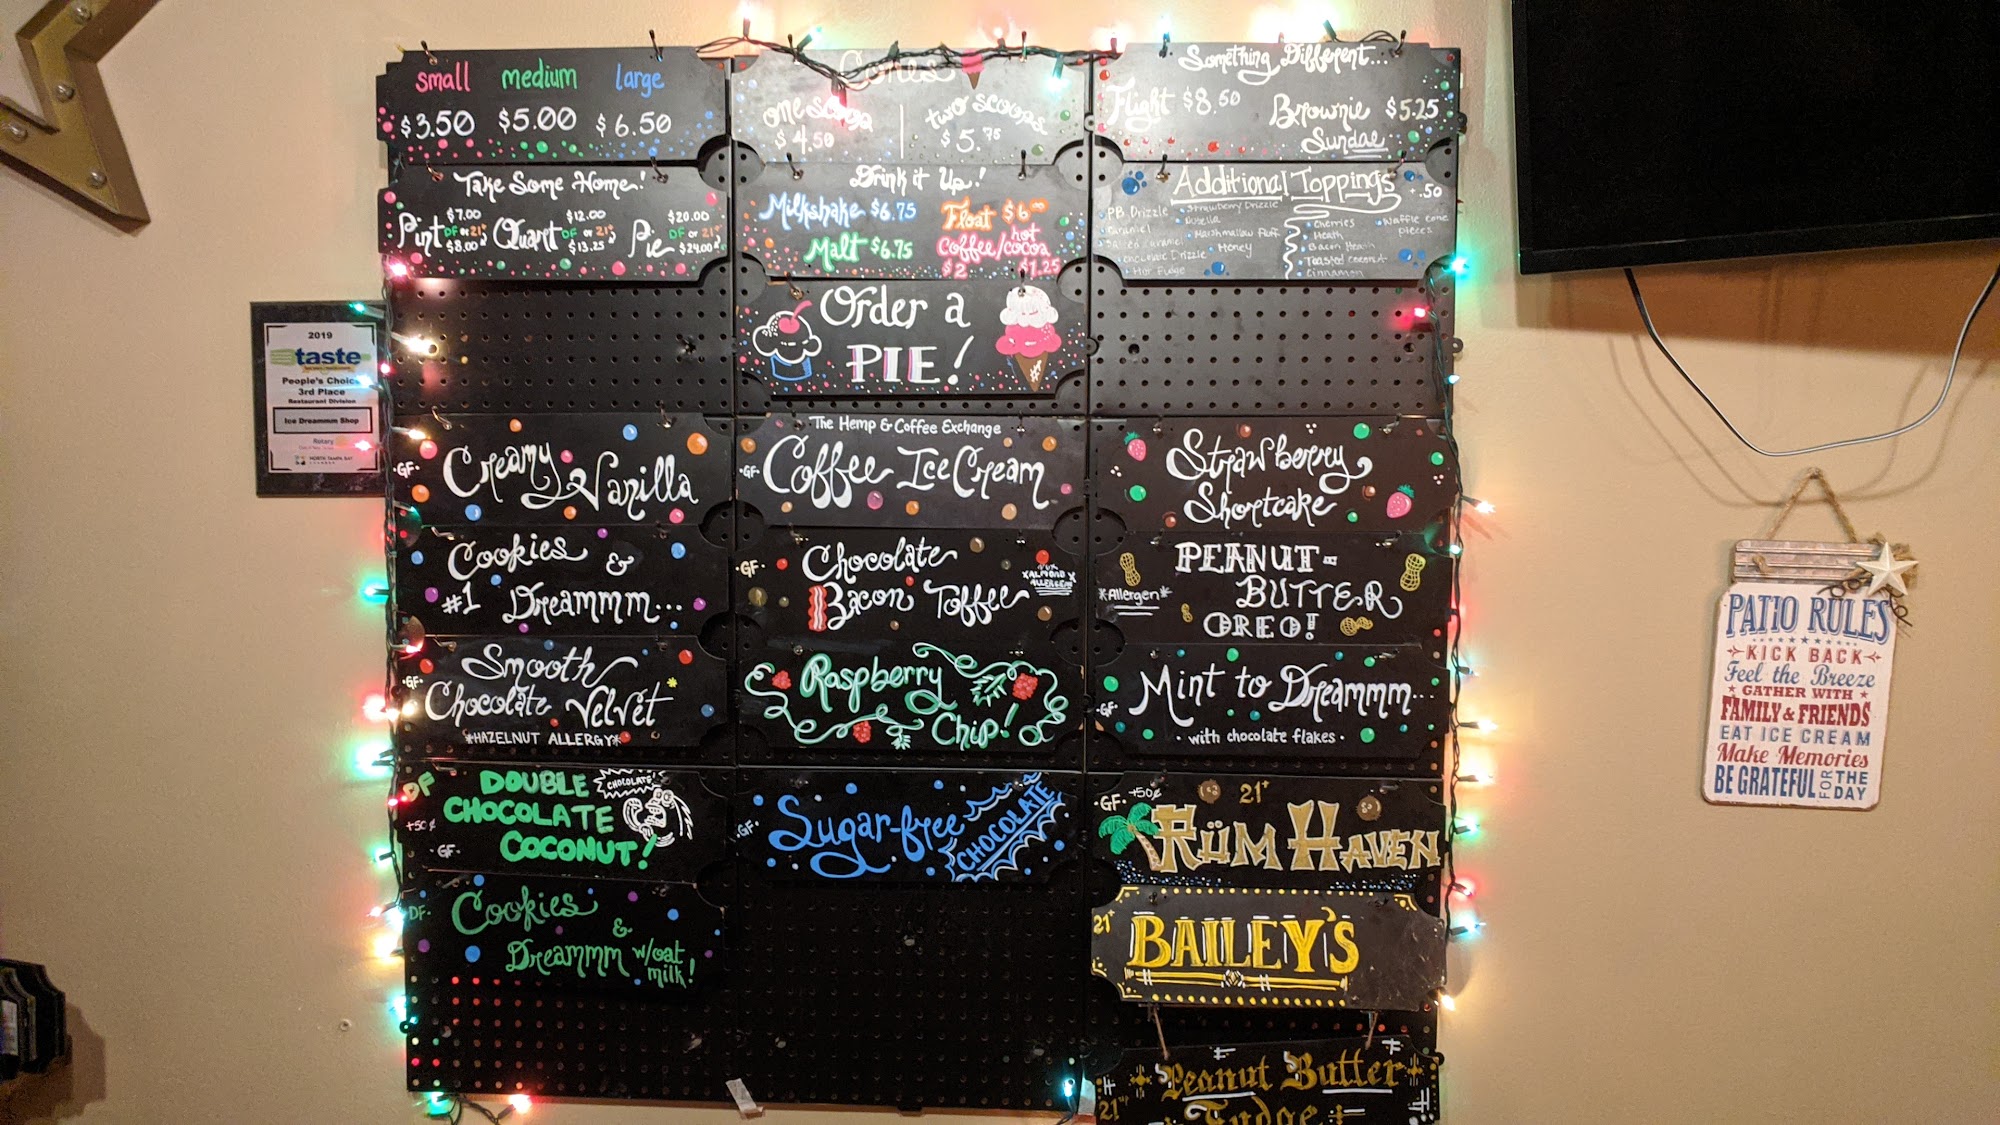 small medium large
$3.50 $5.00 $6.50
Cones
one scoop two scoops
$4.50 $5.75
Something Different...
Flight $8.50 Brownie $5.25
Sundae
Take Some Home!
Pint $7.00 DF or 21+ $8.00
Quart $12.00 DF or 21+ $13.25
Pie $20.00 DF or 21+ $24.00
Drink it Up!
Milkshake $6.75 Float $6.00
Malt $6.75 hot
coffee/cocoa
$2 $1.25
Additional Toppings +.50
PB Drizzle
Caramel
Salted Caramel
Chocolate Drizzle
Hot Fudge
Strawberry Drizzle
Nutella
Marshmallow Fluff
Honey
Cherries
Heath
Bacon Heath
Toasted coconut
Cinnamon
Waffle cone
pieces
Order a
PIE!
2019
taste
People's Choice
3rd Place
Restaurant Division
Ice Dreammm Shop
Rotary
NORTH TAMPA BAY
CHAMBER
·GF· Creamy
Vanilla
The Hemp & Coffee Exchange
·GF· Coffee Ice Cream
Strawberry
Shortcake
Cookies &
#1 Dreammm...
·GF· Chocolate
Bacon Toffee
*ALMOND*
ALLERGEN
PEANUT-
*Allergen* BUTTER
OREO!
Smooth
·GF· Chocolate Velvet
*HAZELNUT ALLERGY*
Raspberry
Chip!
Mint to Dreammm...
·GF·
· with chocolate flakes ·
DF DOUBLE CHOCOLATE!
CHOCOLATE
+50¢ COCONUT!
·GF·
·GF· Sugar-free CHOCOLATE
·GF· +50¢ 21+
RÜM HAVEN
DF· Cookies
&
Dreammm w/oat
milk!
21+ BAILEY'S
Peanut Butter
21+ Fudge
PATIO RULES
KICK BACK
Feel the Breeze
GATHER WITH
FAMILY & FRIENDS
EAT ICE CREAM
Make Memories
BE GRATEFUL FOR THE DAY